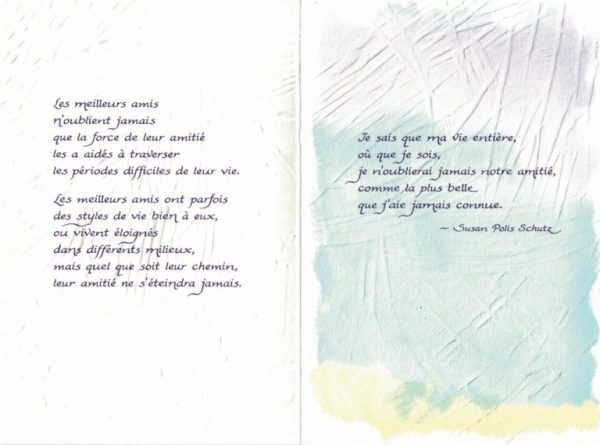 Les meilleurs amis
n'oublient jamais
que la force de leur amitié
les a aidés à traverser
les périodes difficiles de leur vie.
Les meilleurs amis ont parfois
des styles de vie bien à eux,
ou vivent éloignés
dans différents milieux,
mais quel que soit leur chemin,
leur amitié ne s'éteindra jamais.
Je sais que ma vie entière,
où que je sois,
je n'oublierai jamais notre amitié,
comme la plus belle
que j'aie jamais connue.
~ Susan Polis Schutz